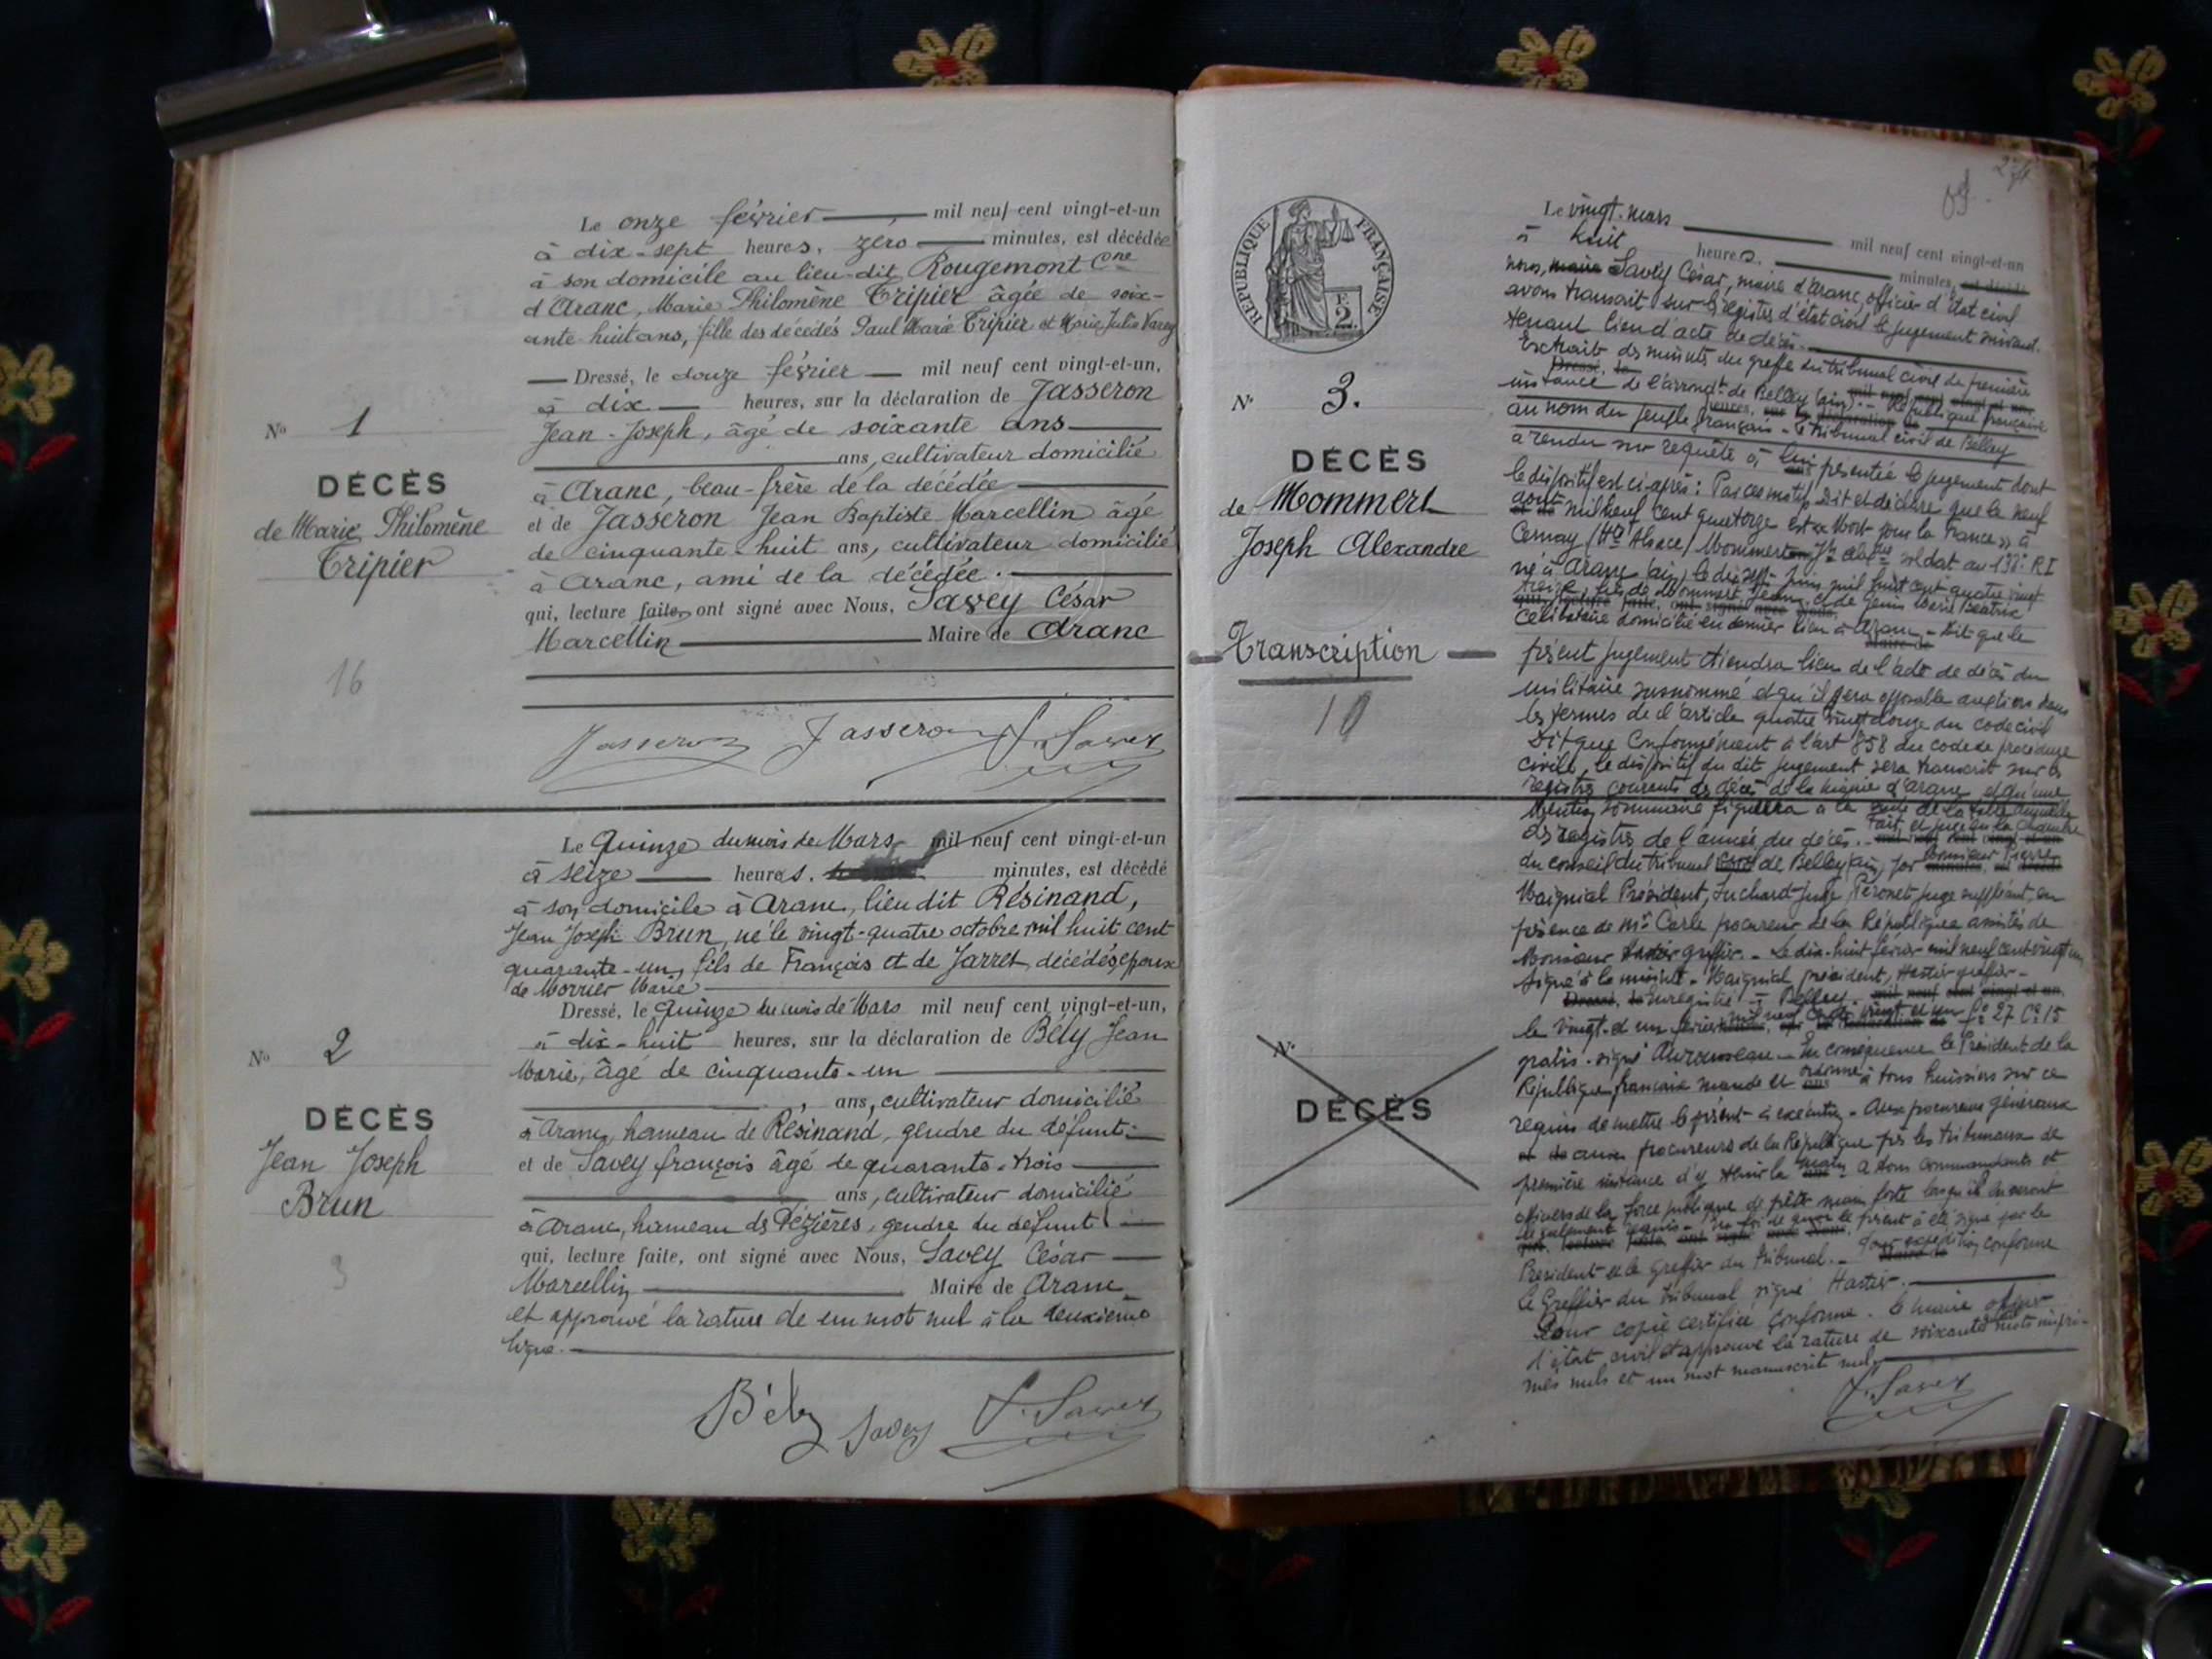 Le onze février — mil neuf cent vingt-et-un
à dix-sept heures, zéro — minutes, est décédée
à son domicile au lieu-dit Rougemont Cne
d'Aranc, Marie Philomène Tripier âgée de soix-
ante-huit ans, fille des décédés Paul Marie Tripier et Marie Julie Varey
— Dressé, le douze février — mil neuf cent vingt-et-un,
à dix — heures, sur la déclaration de Jasseron
Jean-Joseph, âgé de soixante ans —
ans, cultivateur domicilié
à Aranc, beau-frère de la décédée —
et de Jasseron Jean Baptiste Marcellin âgé
de cinquante-huit ans, cultivateur domicilié
à Aranc, ami de la décédée. —
qui, lecture faite, ont signé avec Nous, Savey César
Marcellin — Maire de Aranc
No 1
DÉCÈS
de Marie Philomène
Tripier
16
Jasseron Jasseron Savey
Le Quinze du mois de Mars mil neuf cent vingt-et-un
à seize — heures. minutes, est décédé
à son domicile à Aranc, lieu dit Résinand,
Jean Joseph Brun, né le vingt-quatre octobre mil huit cent
quarante-un, fils de François et de Jarret, décédés, époux
de Morrier Marie —
Dressé, le Quinze du mois de Mars mil neuf cent vingt-et-un,
à dix-huit heures, sur la déclaration de Bély Jean
Marie, âgé de cinquante-un —
ans, cultivateur domicilié
à Aranc, hameau de Résinand, gendre du défunt; —
et de Savey françois âgé de quarante-trois —
ans, cultivateur domicilié
à Aranc, hameau de Pézières, gendre du défunt —
qui, lecture faite, ont signé avec Nous, Savey César —
Marcellin — Maire de Aranc
et approuvé la rature de un mot nul à la deuxième
ligne. —
No 2
DÉCÈS
Jean Joseph
Brun
9
Bély Savey Savey
RÉPUBLIQUE FRANÇAISE
No 3.
DÉCÈS
de Mommert
Joseph Alexandre
Transcription
10
Le vingt mars — mil neuf cent vingt-et-un
à huit heures. — minutes, est décédé
nous, maire Savey César, maire d'Aranc, officier d'état civil
avons transcrit sur les registres d'état civil le jugement suivant
tenant lieu d'acte de décès. —
Extrait des minutes du greffe du tribunal civil de première
instance de l'arrondt de Belley (Ain). — République française
au nom du peuple français - le tribunal civil de Belley
a rendu sur requête à lui présentée le jugement dont
le dispositif est ci-après: Par ces motifs Dit et déclare que le neuf
août mil neuf cent quatorze est « Mort pour la France » à
Cernay (Hte Alsace) Mommert soldat au R I
né à Aranc (Ain) le dix sept juin mil huit cent quatre vingt
treize, fils de Mommert et de Genin Marie Béatrix
célibataire domicilié en dernier lieu à Aranc. - Dit que le
présent jugement tiendra lieu de l'acte de décès du
militaire susnommé et qu'il sera opposable aux tiers dans
les termes de l'article quatre vingt douze du code civil
Dit que conformément à l'art 858 du code de procédure
civile, le dispositif du dit jugement sera transcrit sur les
registres courants des décès de la mairie d'Aranc et qu'une
Mention sommaire figurera à la suite de la table annuelle
des registres de l'année du décès. - Fait et jugé en la chambre
du conseil du tribunal de Belley (Ain) par Monsieur Pierre
Maignial Président, juge, juge suppléant, en
présence de Mr Carle procureur de la République assistés de
Monsieur Hastier greffier. - Le dix-huit février mil neuf cent vingt un
signé à la minute - Maignial président, Hastier greffier -
Enregistré à Belley
le vingt et un février mil neuf cent vingt et un fo 27 Co 15
gratis. signé - En conséquence le Président de la
République française mande et ordonne à tous huissiers sur ce
requis de mettre le présent à exécution - Aux procureurs généraux
et aux procureurs de la République près les tribunaux de
première instance d'y tenir la main. A tous commandants et
officiers de la force publique de prêter main forte lorsqu'ils en seront
légalement requis - En foi de quoi le présent a été signé par le
Président et le Greffier du tribunal. - Pour expédition conforme
le Greffier du tribunal signé Hastier. —
Pour copie certifiée conforme. le maire officier
d'état civil et approuvé la rature de soixante mots impri-
més nuls et un mot manuscrit nul, —
Savey
No
DÉCÈS